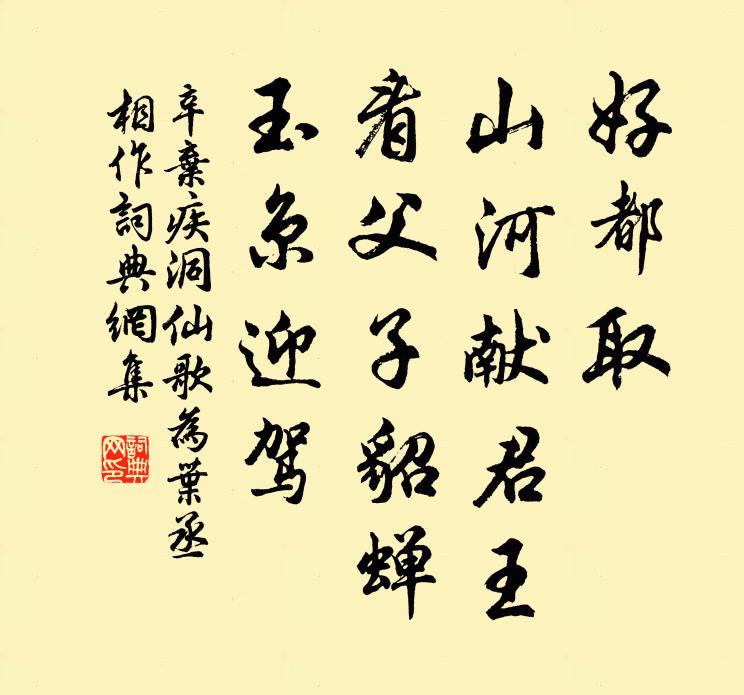 好都取
山河献君王
看父子貂蝉
玉京迎驾
辛棄疾洞仙歌為葉丞
相作詞典網集
詞典网印